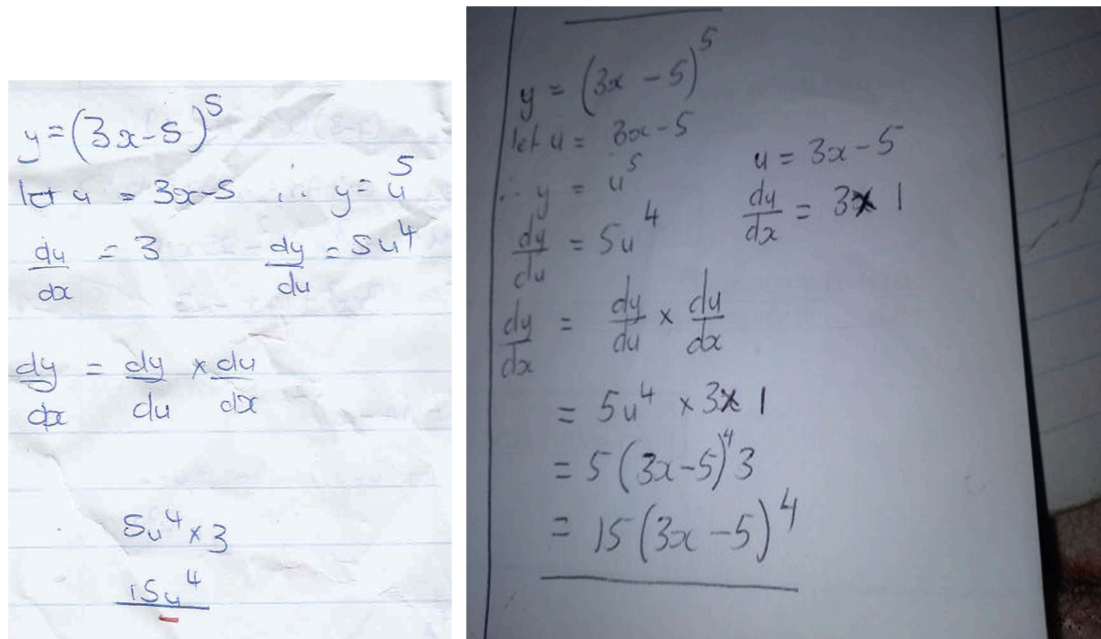 y = (3x - 5)^5
let u = 3x - 5 ∴ y = u^5
du/dx = 3 dy/du = 5u^4
dy/dx = dy/du × du/dx
5u^4 × 3
15u^4
y = (3x - 5)^5
let u = 3x - 5
∴ y = u^5 u = 3x - 5
dy/du = 5u^4 du/dx = 3 × 1
dy/dx = dy/du × du/dx
= 5u^4 × 3 × 1
= 5(3x - 5)^4 3
= 15(3x - 5)^4